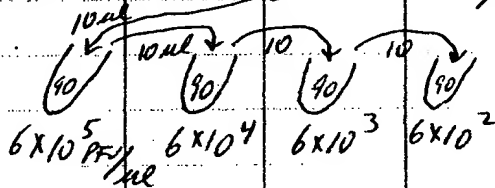 10 µl
10 µl 10 10
90 90 90 90
6 x 10⁵ PFU/µl 6 x 10⁴ 6 x 10³ 6 x 10²